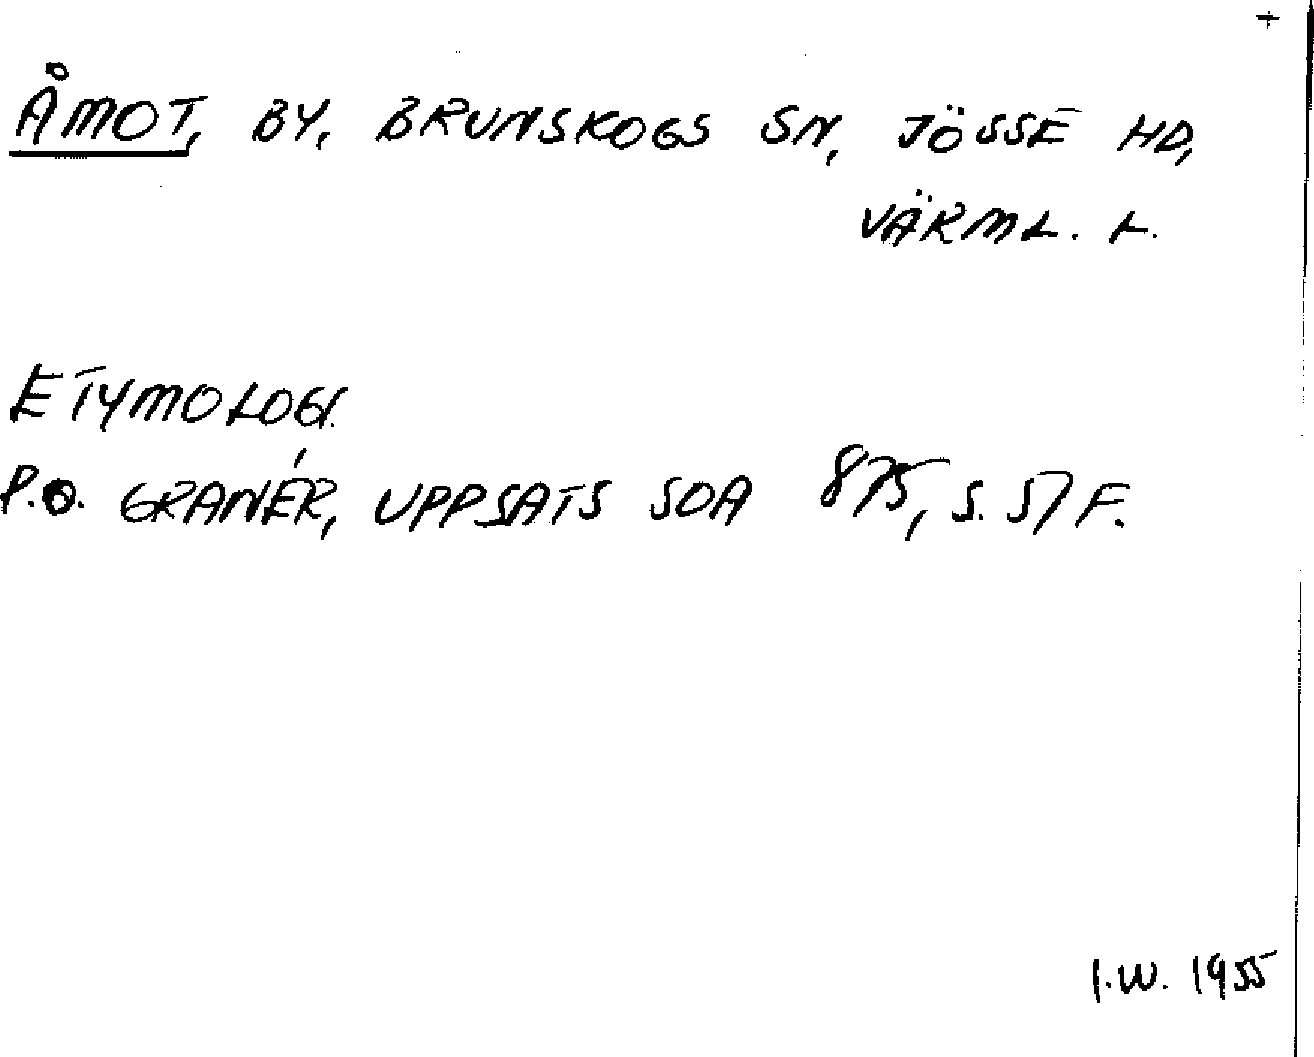 +
ÅMOT, BY, BRUNSKOGS SN, JÖSSE HD,
VÄRML. L.
ETYMOLOGI.
P.O. GRANÉR, UPPSATS SOA 875, S. 57 F.
I.W. 1955